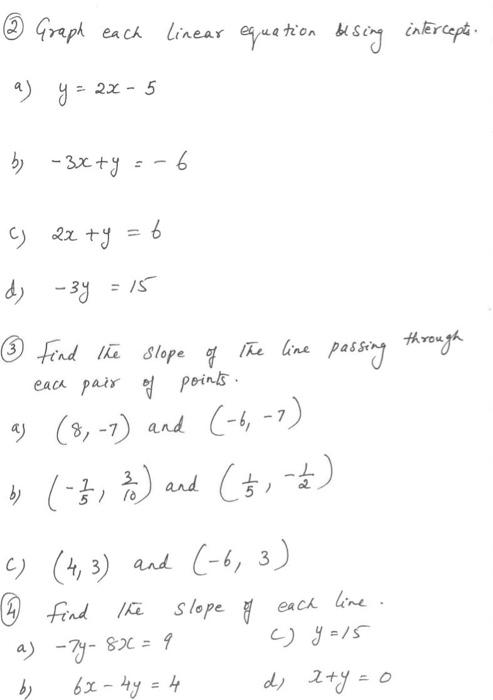 ② Graph each linear equation using intercepts.
a) y = 2x - 5
b) -3x + y = - 6
c) 2x + y = 6
d) -3y = 15
③ Find the slope of the line passing through
each pair of points.
a) (8, -7) and (-6, -7)
b) (-7/5, 3/10) and (1/5, -1/2)
c) (4, 3) and (-6, 3)
④ Find the slope of each line.
a) -7y - 8x = 9 c) y = 15
b) 6x - 4y = 4 d) x + y = 0